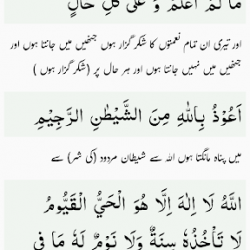 مَا لَمْ اَعْلَمْ وَ عَلٰى كُلِّ حَالٍ
اور تیری ان تمام نعمتوں کا شکر گزار ہوں جنھیں میں جانتا ہوں اور
جنھیں میں نہیں جانتا ہوں اور ہر حال پر (شکر گزار ہوں )
اَعُوْذُ بِاللّٰهِ مِنَ الشَّيْطٰنِ الرَّجِيْمِ
میں پناہ مانگتا ہوں اللہ سے شیطان مردود (کی شر) سے
اَللّٰهُ لَا اِلٰهَ اِلَّا هُوَ الْحَيُّ الْقَيُّوْمُ
لَا تَاْخُذُهٗ سِنَةٌ وَّلَا نَوْمٌ لَهٗ مَا فِى